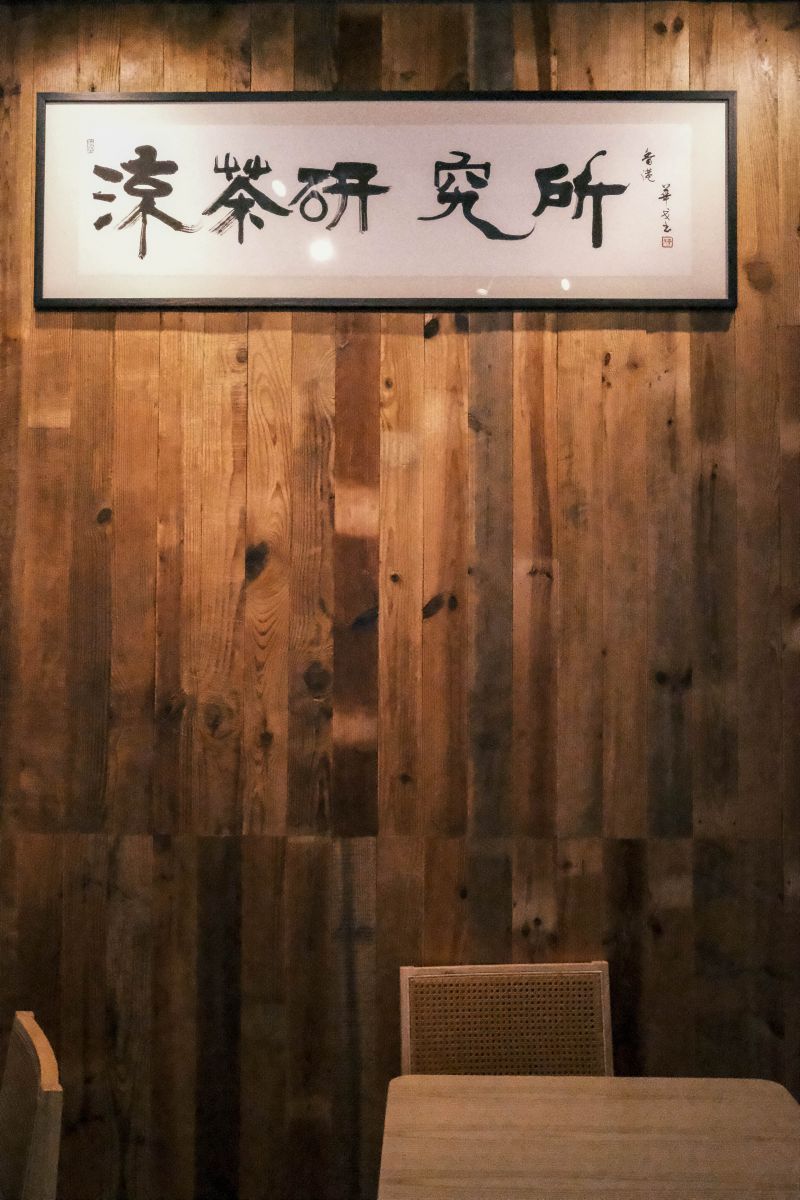 涼茶研究所
香港
華戈書